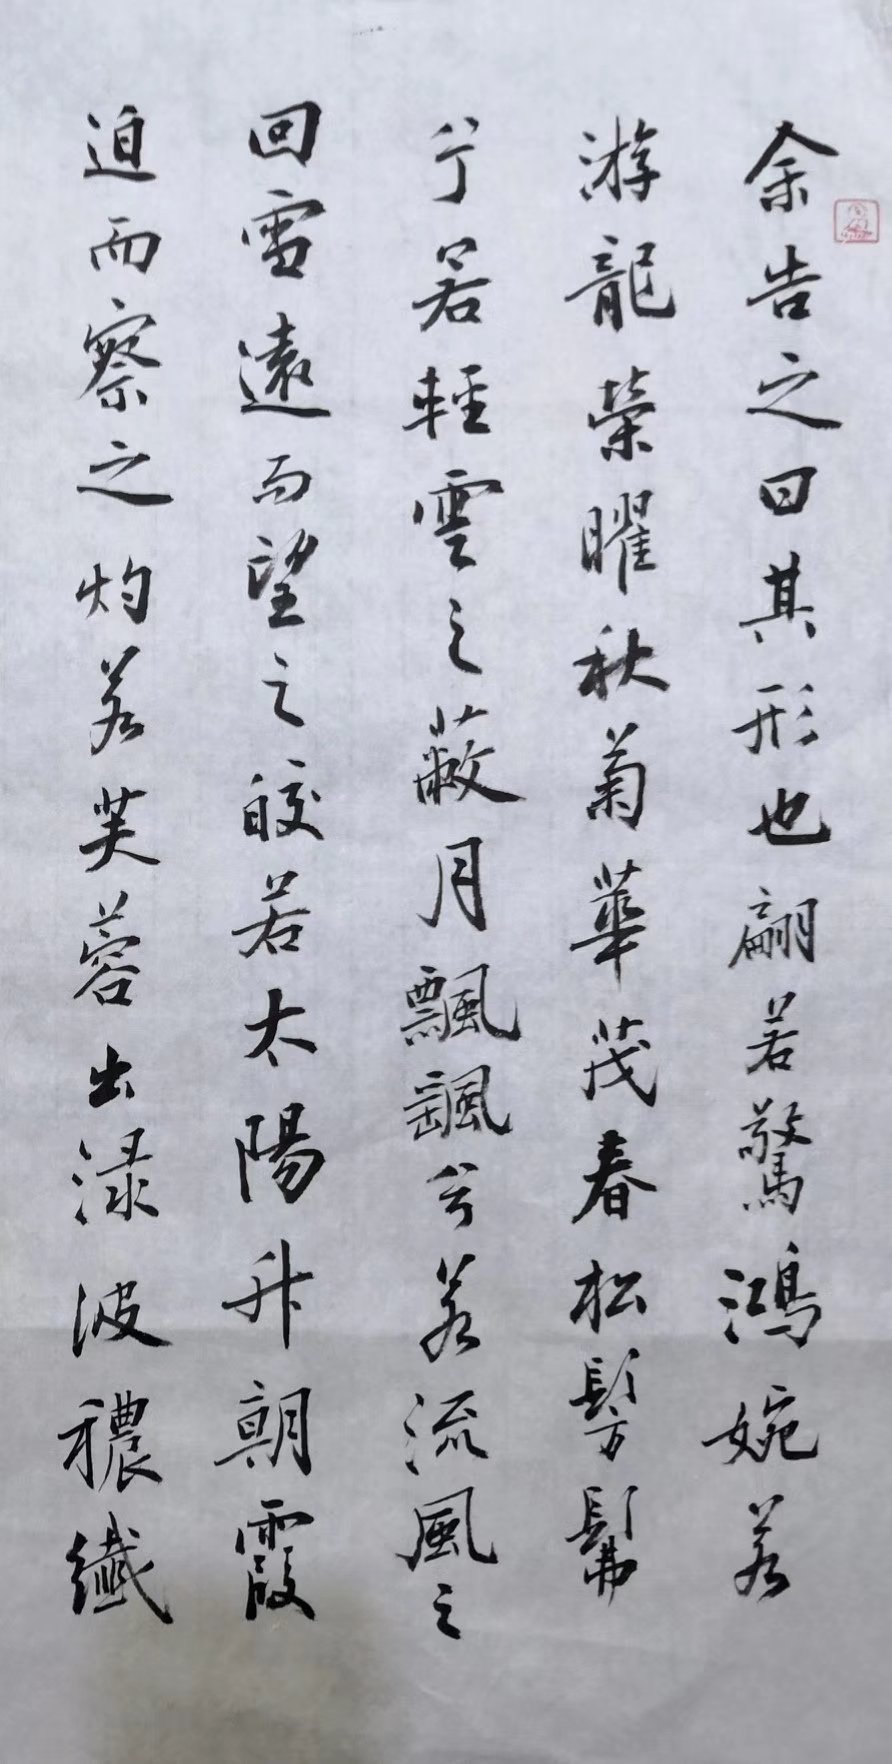 余告之曰其形也翩若驚鴻婉若
游龍榮曜秋菊華茂春松髣髴
兮若輕雲之蔽月飄颻兮若流風之
回雪遠而望之皎若太陽升朝霞
迫而察之灼若芙蓉出渌波穠纖